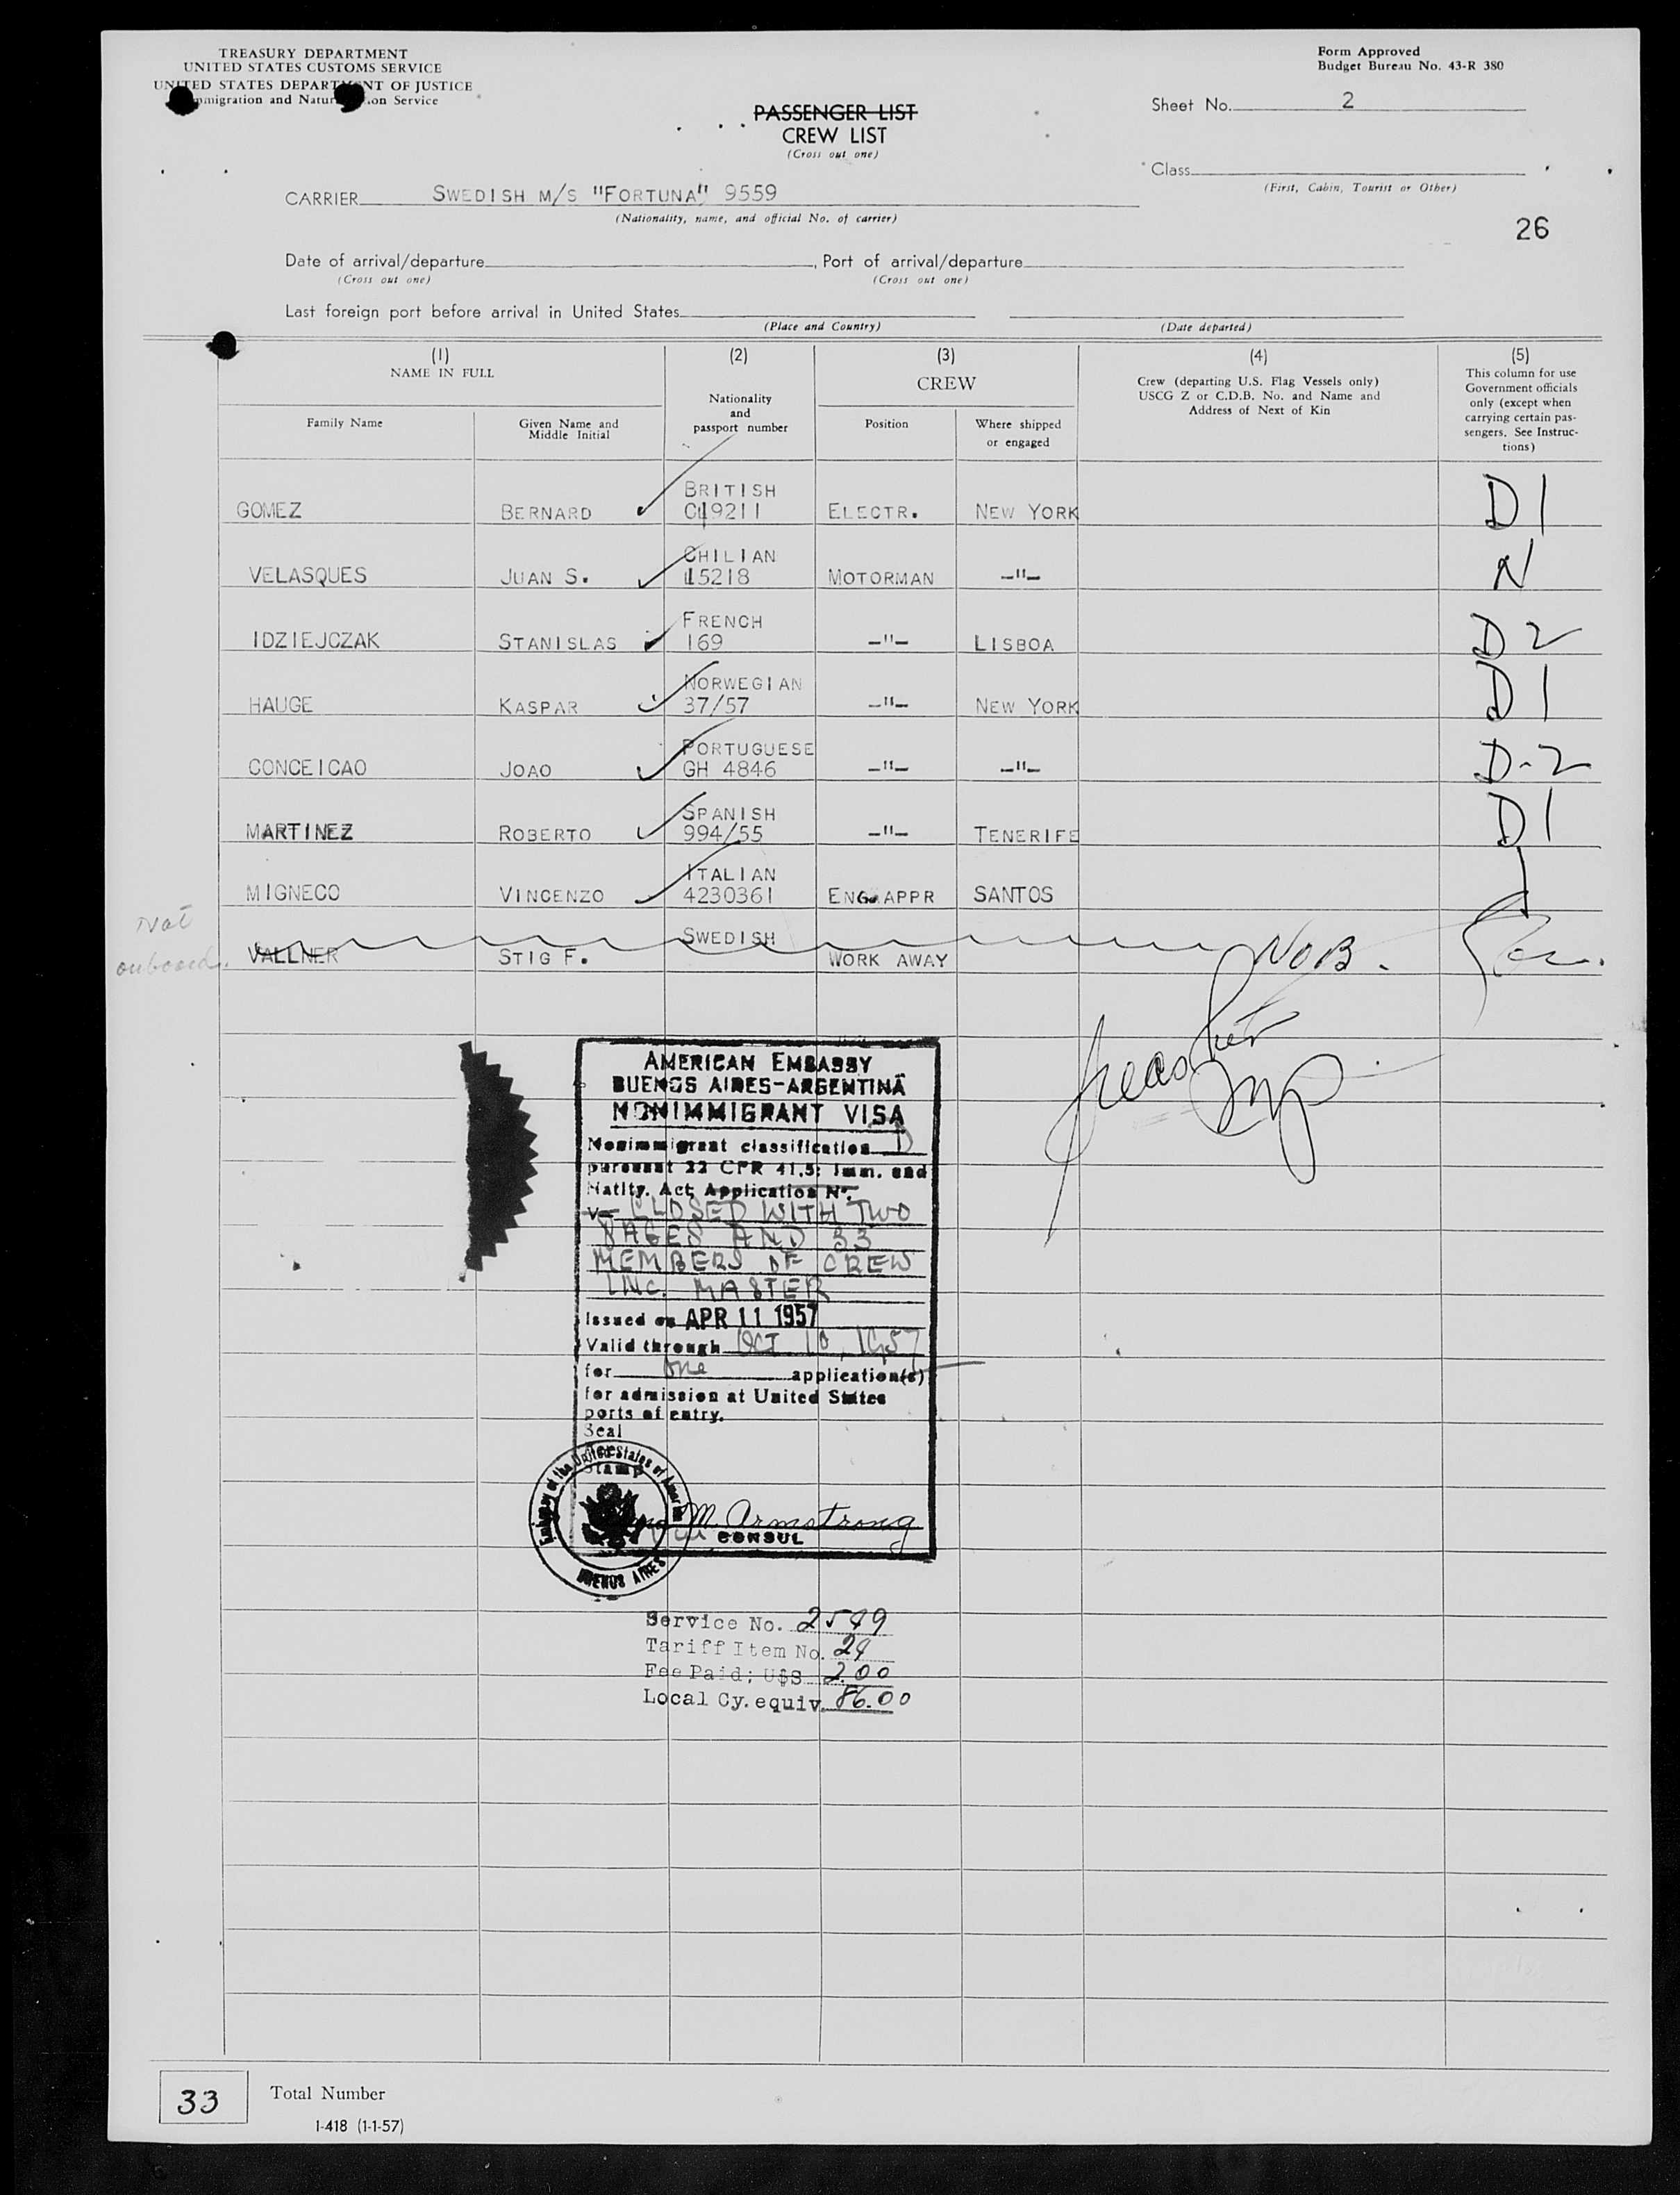 TREASURY DEPARTMENT
UNITED STATES CUSTOMS SERVICE
UNITED STATES DEPARTMENT OF JUSTICE
Immigration and Naturalization Service
Form Approved
Budget Bureau No. 43-R 380
Sheet No. 2
PASSENGER LIST
CREW LIST
(Cross out one)
Class
(First, Cabin, Tourist or Other)
CARRIER SWEDISH M/S "FORTUNA" 9559
(Nationality, name, and official No. of carrier)
26
Date of arrival/departure , Port of arrival/departure
(Cross out one) (Cross out one)
Last foreign port before arrival in United States
(Place and Country) (Date departed)
(1) (2) (3) (4) (5)
NAME IN FULL
Family Name
Given Name and
Middle Initial
Nationality
and
passport number
CREW
Position
Where shipped
or engaged
Crew (departing U.S. Flag Vessels only)
USCG Z or C.D.B. No. and Name and
Address of Next of Kin
This column for use
Government officials
only (except when
carrying certain pas-
sengers. See Instruc-
tions)
BRITISH
GOMEZ BERNARD C19211 ELECTR. NEW YORK D1
CHILIAN
VELASQUES JUAN S. 15218 MOTORMAN -"- N
FRENCH
IDZIEJCZAK STANISLAS 169 -"- LISBOA D2
NORWEGIAN
HAUGE KASPAR 37/57 -"- NEW YORK D1
PORTUGUESE
CONCEICAO JOAO GH 4846 -"- -"- D-2
SPANISH
MARTINEZ ROBERTO 994/55 -"- TENERIFE D1
ITALIAN
MIGNECO VINCENZO 4230361 ENG.APPR SANTOS
Not
onboard.
SWEDISH
VALLNER STIG F. WORK AWAY NOB.
AMERICAN EMBASSY
BUENOS AIRES-ARGENTINA
NONIMMIGRANT VISA
Nonimmigrant classification D
pursuant 22 CFR 41.5: Imm. and
Natlty. Act; Application Nº.
V- CLOSED WITH TWO
PAGES AND 33
MEMBERS OF CREW
INC. MASTER
Issued on APR 11 1957
Valid through OCT 10, 1957
for one application(s)
for admission at United States
ports of entry.
Seal
Fee
Stamp
Embassy of the United States of America
BUENOS AIRES
M. Armstrong
Vice CONSUL
Service No. 2599
Tariff Item No. 24
Fee Paid; U$S 2.00
Local Cy. equiv. 86.00
33 Total Number
I-418 (1-1-57)